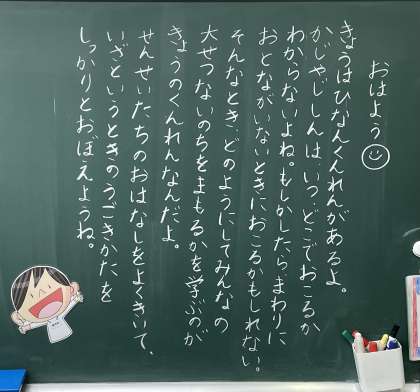 おはよう
きょうはひなんくんれんがあるよ。
かじやじしんは、いつ、どこでおこるか
わからないよね。もしかしたら、まわりに
おとながいないときにおこるかもしれない。
そんなとき、どのようにしてみんなの
大せつないのちをまもるかを学ぶのが
きょうのくんれんなんだよ。
せんせいたちのおはなしをよくきいて、
いざというときのうごきかたを
しっかりとおぼえようね。